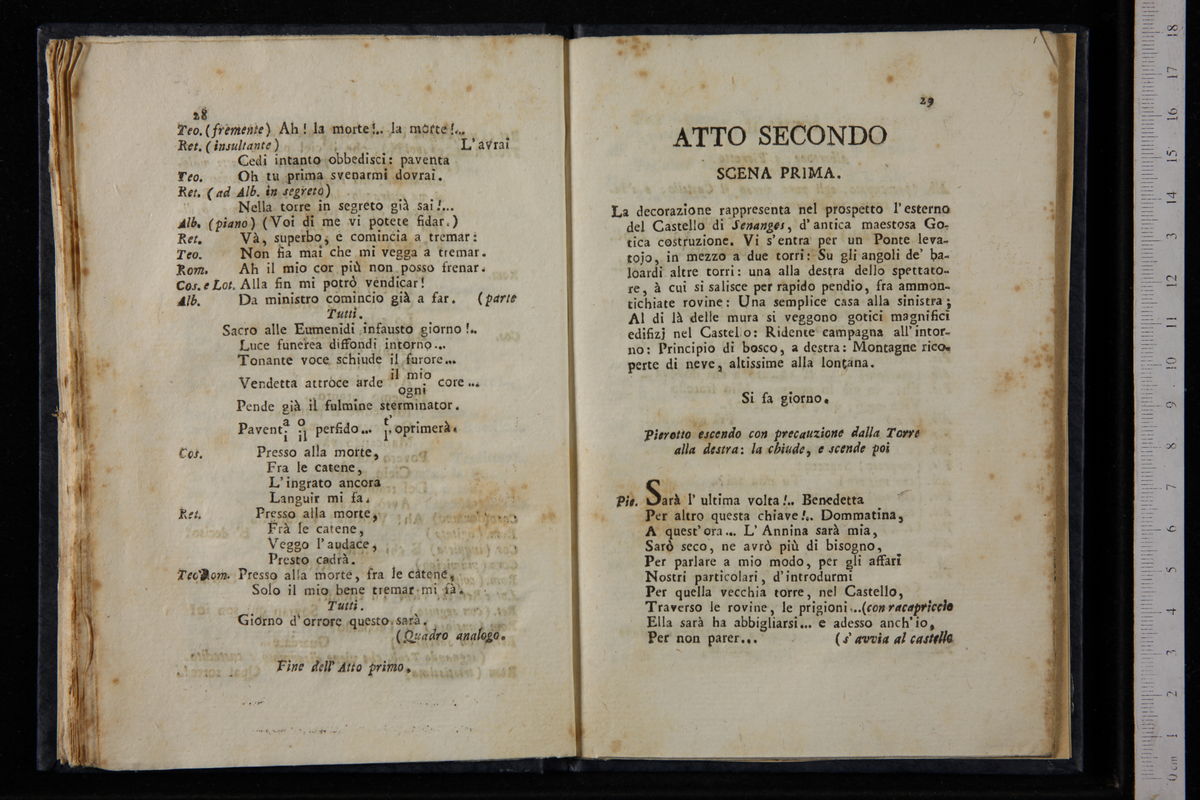 28
Teo. (fremente) Ah! la morte!.. la morte!...
Ret. (insultante) L'avrai
Cedi intanto obbedisci: paventa
Teo. Oh tu prima svenarmi dovrai.
Ret. (ad Alb. in segreto)
Nella torre in segreto già sai!...
Alb. (piano) (Voi di me vi potete fidar.)
Ret. Và, superbo, e comincia a tremar:
Teo. Non fia mai che mi vegga a tremar.
Rom. Ah il mio cor più non posso frenar.
Cos. e Lot. Alla fin mi potrò vendicar!
Alb. Da ministro comincio già a far. (parte
Tutti.
Sacro alle Eumenidi infausto giorno!..
Luce funerea diffondi intorno...
Tonante voce schiude il furore...
Vendetta attroce arde il mio core...
ogni
Pende già il fulmine sterminator.
Pavent: a o perfido... t' oprimerà.
i il l'
Cos. Presso alla morte,
Fra le catene,
L'ingrato ancora
Languir mi fa.
Ret. Presso alla morte,
Frà le catene,
Veggo l'audace,
Presto cadrà.
Teo Rom. Presso alla morte, fra le catene,
Solo il mio bene tremar mi fà.
Tutti.
Giorno d'orrore questo sarà.
(Quadro analogo.
Fine dell' Atto primo.
29
ATTO SECONDO
SCENA PRIMA.
La decorazione rappresenta nel prospetto l'esterno
del Castello di Senanges, d'antica maestosa Go-
tica costruzione. Vi s'entra per un Ponte leva-
tojo, in mezzo a due torri: Su gli angoli de' ba-
loardi altre torri: una alla destra dello spettato-
re, à cui si salisce per rapido pendio, fra ammon-
tichiate rovine: Una semplice casa alla sinistra;
Al di là delle mura si veggono gotici magnifici
edifizj nel Castello: Ridente campagna all'intor-
no: Principio di bosco, a destra: Montagne rico-
perte di neve, altissime alla lontana.
Si fa giorno.
Pierotto escendo con precauzione dalla Torre
alla destra: la chiude, e scende poi
Pie. Sarà l' ultima volta!.. Benedetta
Per altro questa chiave!.. Dommatina,
A quest'ora... L' Annina sarà mia,
Sarò seco, ne avrò più di bisogno,
Per parlare a mio modo, per gli affari
Nostri particolari, d'introdurmi
Per quella vecchia torre, nel Castello,
Traverso le rovine, le prigioni...(con racapriccio
Ella sarà ha abbigliarsi... e adesso anch'io,
Per non parer... (s'avvia al castello